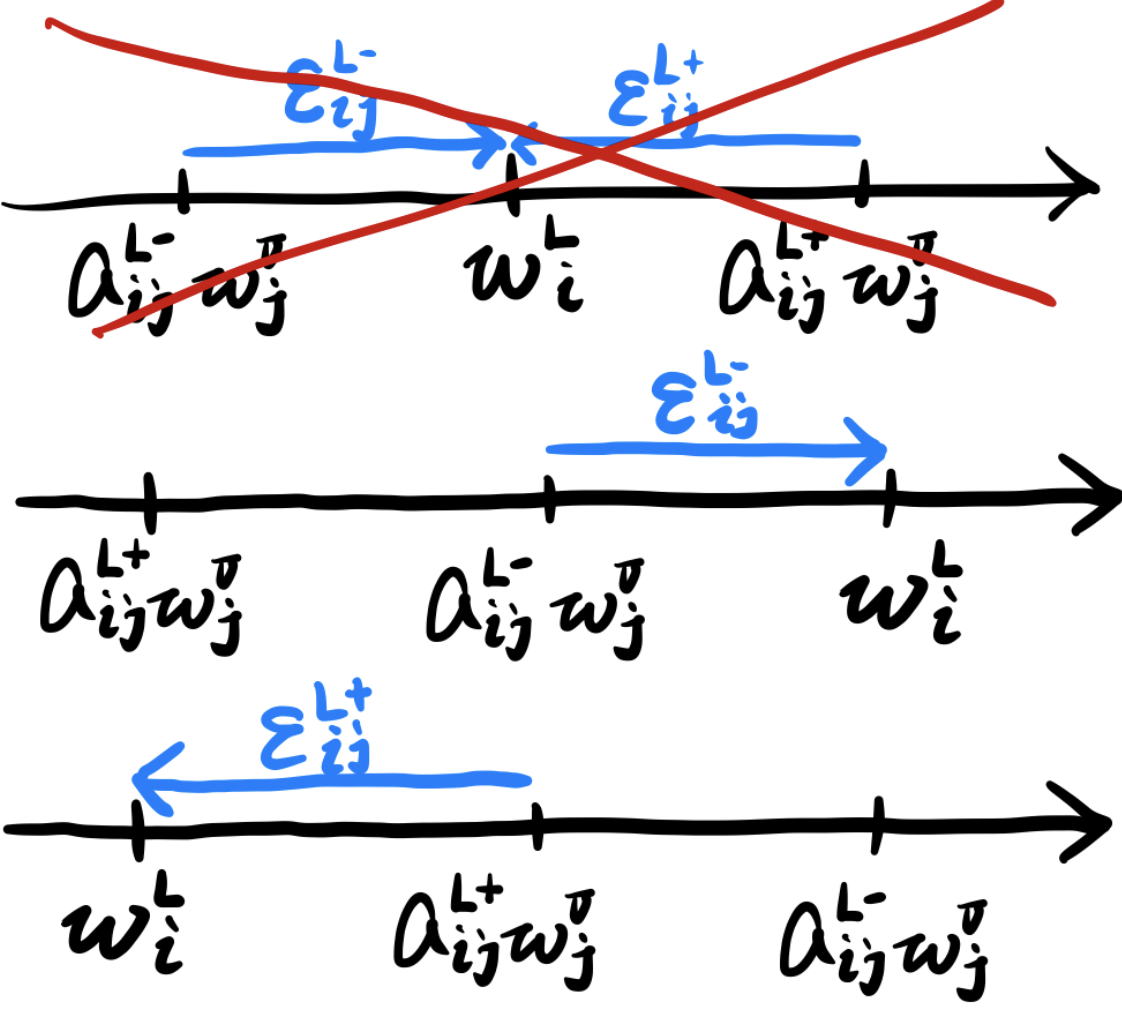 εᵢⱼᴸ⁻ εᵢⱼᴸ⁺
aᵢⱼᴸ⁻wⱼᵁ wᵢᴸ aᵢⱼᴸ⁺wⱼᵁ
εᵢⱼᴸ⁻
aᵢⱼᴸ⁺wⱼᵁ aᵢⱼᴸ⁻wⱼᵁ wᵢᴸ
εᵢⱼᴸ⁺
wᵢᴸ aᵢⱼᴸ⁺wⱼᵁ aᵢⱼᴸ⁻wⱼᵁ